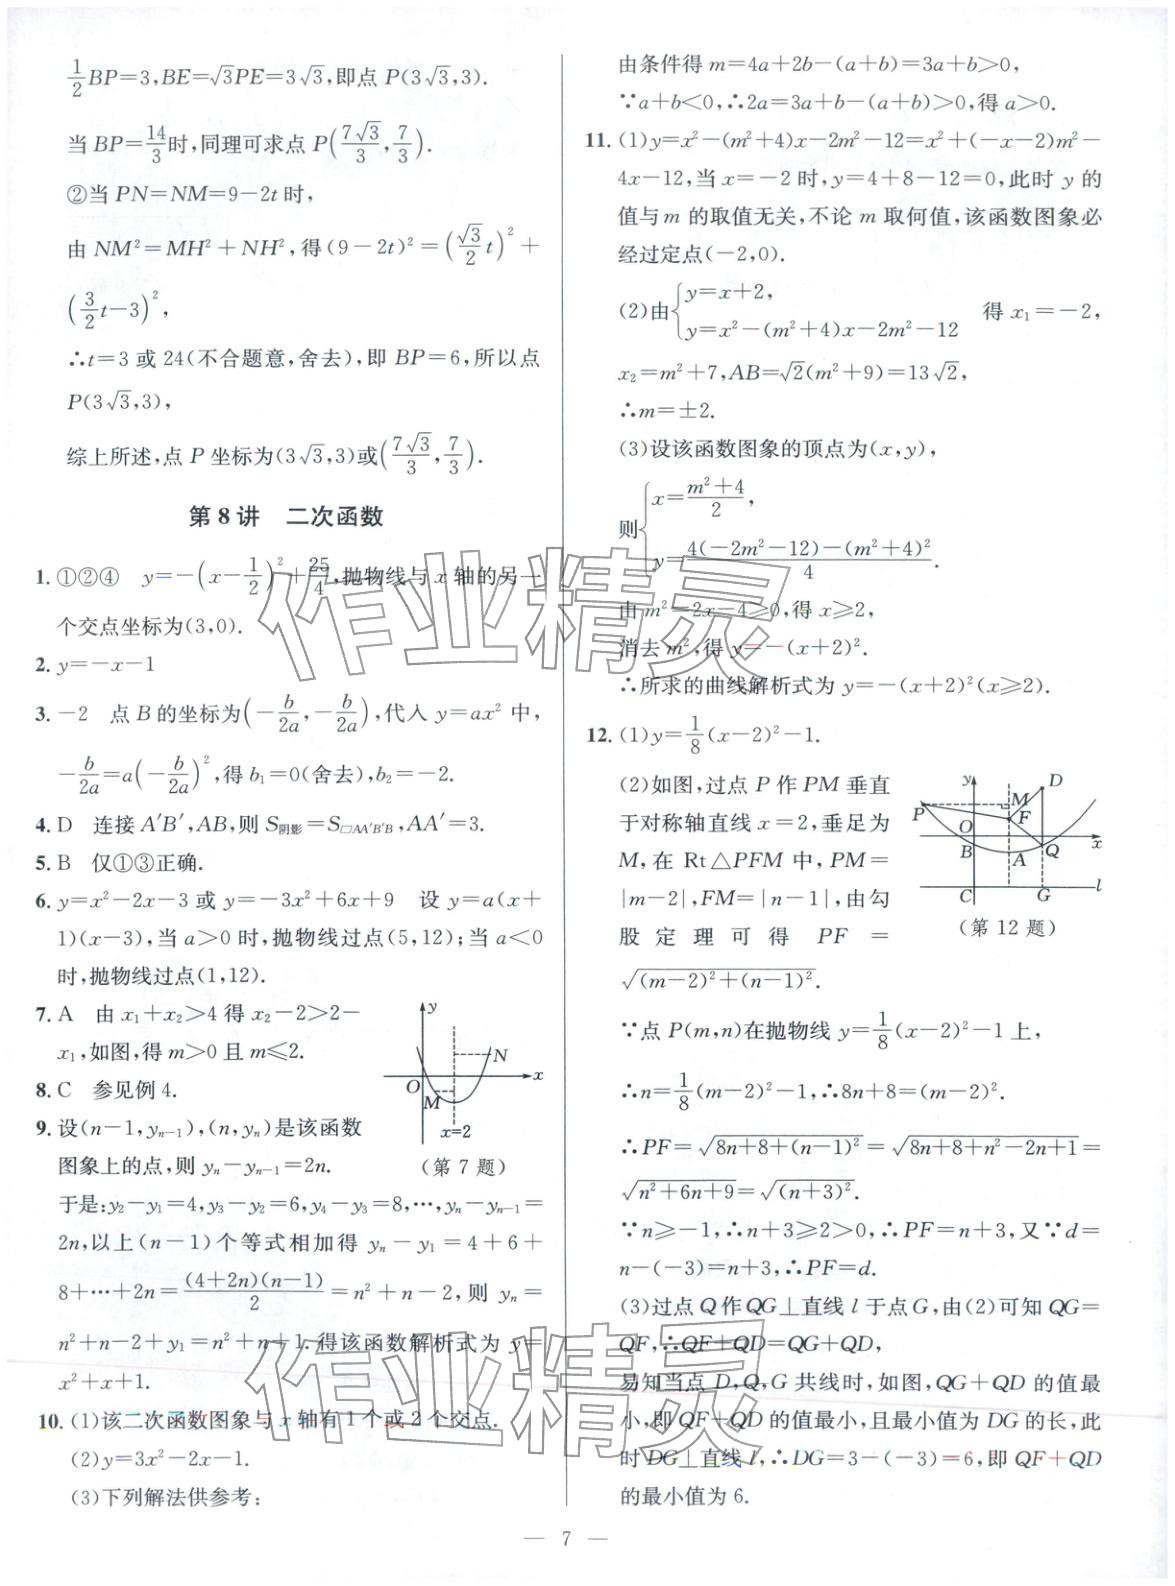 1/2 BP=3,BE=√3PE=3√3,即点 P(3√3,3).
当 BP=14/3时,同理可求点 P(7√3/3,7/3).
②当 PN=NM=9-2t 时,
由 NM²=MH²+NH²,得(9-2t)²=(√3/2 t)²+
(3/2 t-3)²,
∴t=3 或 24(不合题意,舍去),即 BP=6,所以点
P(3√3,3),
综上所述,点 P 坐标为(3√3,3)或(7√3/3,7/3).
第 8 讲 二次函数
1. ①②④ y=-(x-1/2)²+25/4,抛物线与 x 轴的另一
个交点坐标为(3,0).
2. y=-x-1
3. -2 点 B 的坐标为(-b/2a,-b/2a),代入 y=ax² 中,
-b/2a=a(-b/2a)²,得 b₁=0(舍去),b₂=-2.
4. D 连接 A′B′,AB,则 S阴影=S□AA′B′B,AA′=3.
5. B 仅①③正确.
6. y=x²-2x-3 或 y=-3x²+6x+9 设 y=a(x+
1)(x-3),当 a>0 时,抛物线过点(5,12);当 a<0
时,抛物线过点(1,12).
7. A 由 x₁+x₂>4 得 x₂-2>2-
x₁,如图,得 m>0 且 m≤2.
8. C 参见例 4.
9. 设(n-1,yₙ₋₁),(n,yₙ)是该函数
图象上的点,则 yₙ-yₙ₋₁=2n.
y
N
O
x
M
x=2
(第 7 题)
于是:y₂-y₁=4,y₃-y₂=6,y₄-y₃=8,…,yₙ-yₙ₋₁=
2n,以上(n-1)个等式相加得 yₙ-y₁=4+6+
8+…+2n=(4+2n)(n-1)/2=n²+n-2,则 yₙ=
n²+n-2+y₁=n²+n+1.得该函数解析式为 y=
x²+x+1.
10. (1)该二次函数图象与 x 轴有 1 个或 2 个交点.
(2)y=3x²-2x-1.
(3)下列解法供参考:
由条件得 m=4a+2b-(a+b)=3a+b>0,
∵a+b<0,∴2a=3a+b-(a+b)>0,得 a>0.
11. (1)y=x²-(m²+4)x-2m²-12=x²+(-x-2)m²-
4x-12,当 x=-2 时,y=4+8-12=0,此时 y 的
值与 m 的取值无关,不论 m 取何值,该函数图象必
经过定点(-2,0).
(2)由{y=x+2,
y=x²-(m²+4)x-2m²-12 得 x₁=-2,
x₂=m²+7,AB=√2(m²+9)=13√2,
∴m=±2.
(3)设该函数图象的顶点为(x,y),
则{x=(m²+4)/2,
y=(4(-2m²-12)-(m²+4)²)/4.
由 m²=2x-4≥0,得 x≥2,
消去 m²,得 y=-(x+2)².
∴所求的曲线解析式为 y=-(x+2)²(x≥2).
12. (1)y=1/8(x-2)²-1.
(2)如图,过点 P 作 PM 垂直
于对称轴直线 x=2,垂足为
M,在 Rt△PFM 中,PM=
|m-2|,FM=|n-1|,由勾
股定理可得 PF=
√((m-2)²+(n-1)²).
y
D
P
M
F
O
x
B
A
Q
C
G
l
(第 12 题)
∵点 P(m,n)在抛物线 y=1/8(x-2)²-1 上,
∴n=1/8(m-2)²-1,∴8n+8=(m-2)².
∴PF=√(8n+8+(n-1)²)=√(8n+8+n²-2n+1)=
√(n²+6n+9)=√((n+3)²).
∵n≥-1,∴n+3≥2>0,∴PF=n+3,又∵d=
n-(-3)=n+3,∴PF=d.
(3)过点 Q 作 QG⊥直线 l 于点 G,由(2)可知 QG=
QF,∴QF+QD=QG+QD,
易知当点 D,Q,G 共线时,如图,QG+QD 的值最
小,即 QF+QD 的值最小,且最小值为 DG 的长,此
时 DG⊥直线 l,∴DG=3-(-3)=6,即 QF+QD
的最小值为 6.
作业精灵
作业精灵
— 7 —